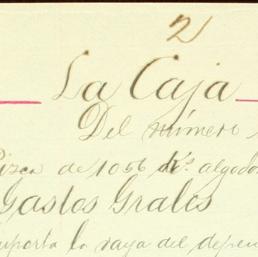 2
La Caja
Del número
de 1056 algodo
Gastos Grales
importa la raya del depen